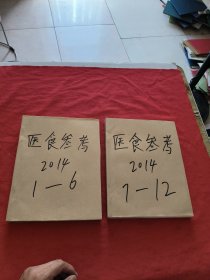 医食参考
2014
1—6
医食参考
2014
7—12